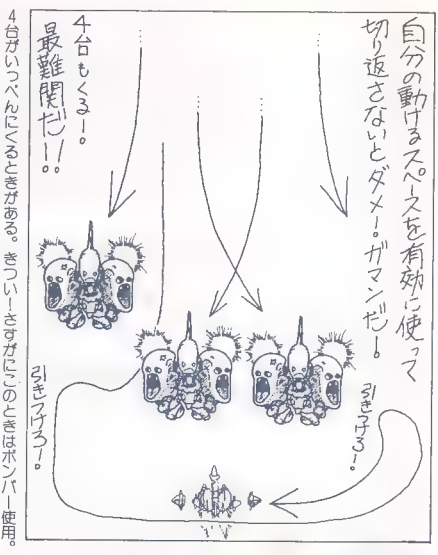 自分の動けるスペースを有効に使って
切り返さないとダメ！ガマンだー。
4台もくるー。
最難関だ！！
引きつけろー。
引きつけろー。
4台がいっぺんにくるときがある。きついーさすがにこのときはボンバー使用。